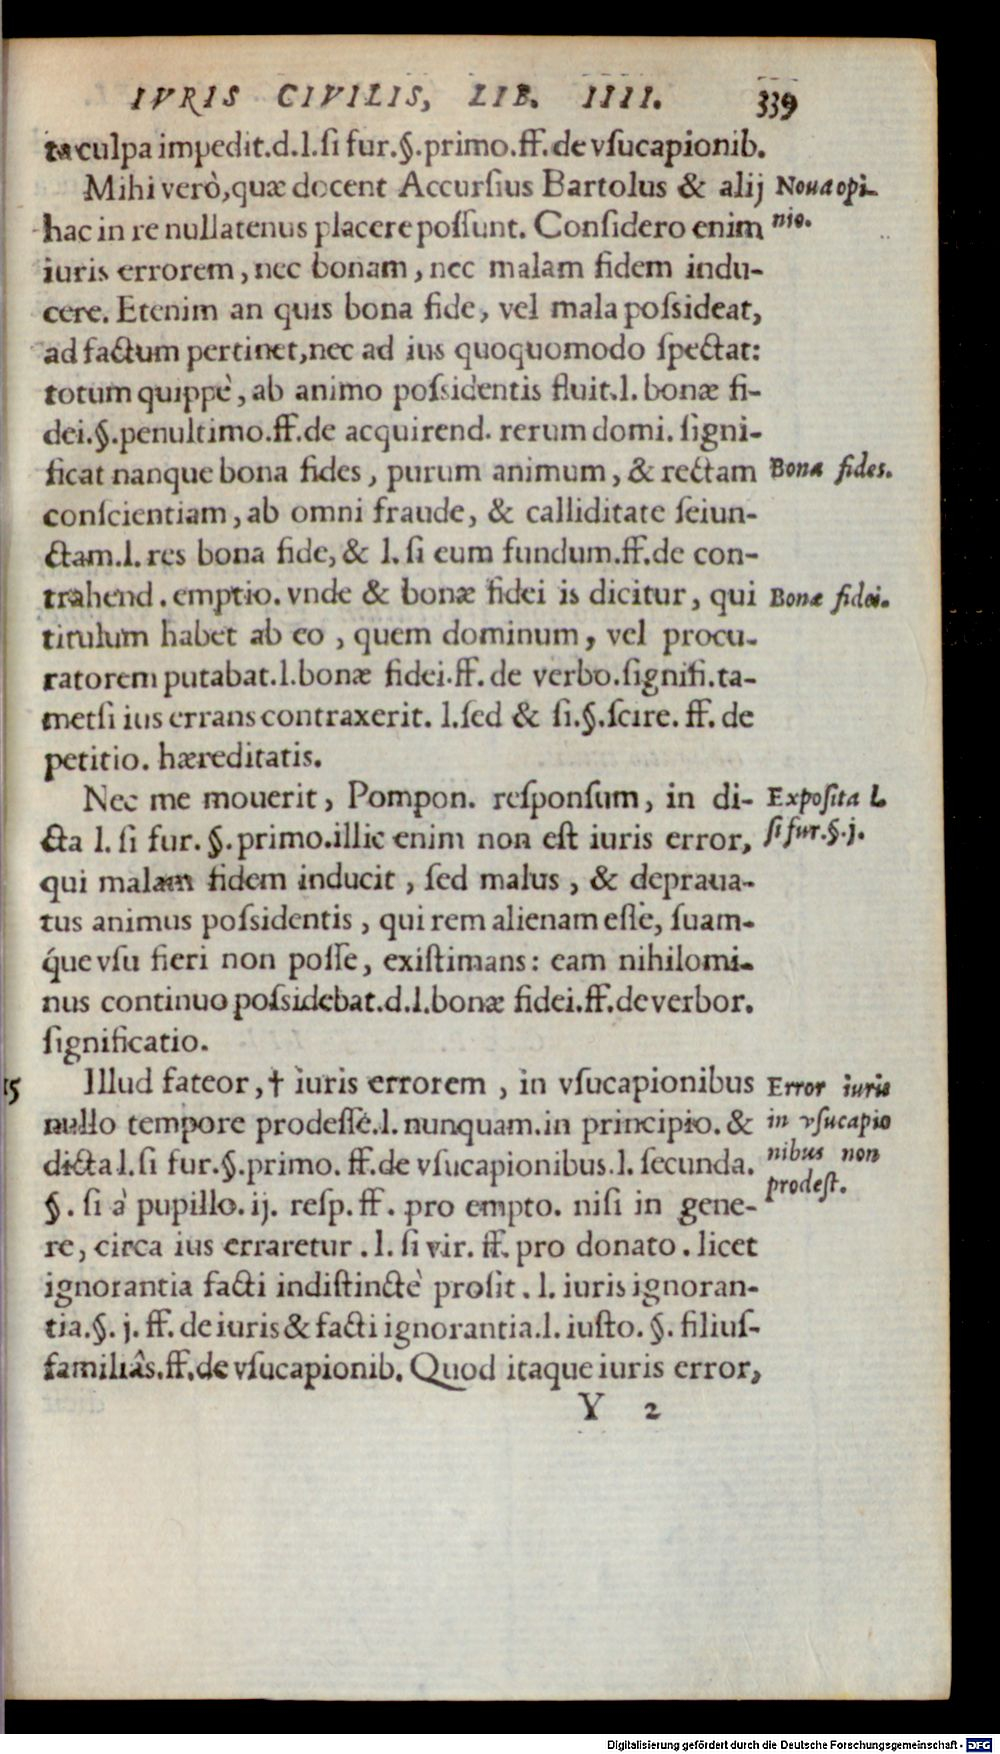 IVRIS CIVILIS, LIB. IIII. 339
ta culpa impedit.d.l.si fur.§.primo.ff.de vsucapionib.
Mihi verò,quæ docent Accursius Bartolus & alij
Noua opi-
nio.
hac in re nullatenus placere possunt. Considero enim
iuris errorem, nec bonam, nec malam fidem indu-
cere. Etenim an quis bona fide, vel mala possideat,
ad factum pertinet,nec ad ius quoquomodo spectat:
totum quippè, ab animo possidentis fluit.l. bonæ fi-
dei.§.penultimo.ff.de acquirend. rerum domi. signi-
ficat nanque bona fides, purum animum, & rectam
Bona fides.
conscientiam, ab omni fraude, & calliditate seiun-
ctam.l. res bona fide, & l. si eum fundum.ff.de con-
trahend. emptio. vnde & bonæ fidei is dicitur, qui
Bonæ fidei.
titulum habet ab eo, quem dominum, vel procu-
ratorem putabat.l.bonæ fidei.ff. de verbo.signifi.ta-
metsi ius errans contraxerit. l.sed & si.§.scire. ff. de
petitio. hæreditatis.
Nec me mouerit, Pompon. responsum, in di-
Exposita l.
si fur.§.j.
cta l. si fur. §.primo.illic enim non est iuris error,
qui malam fidem inducit, sed malus, & depraua-
tus animus possidentis, qui rem alienam esse, suam-
q́ue vsu fieri non posse, existimans: eam nihilomi-
nus continuo possidebat.d.l.bonæ fidei.ff.de verbor.
significatio.
15
Illud fateor,† iuris errorem, in vsucapionibus
Error iuris
in vsucapio
nibus non
prodest.
nullo tempore prodesse.l. nunquam.in principio. &
dicta l.si fur.§.primo. ff.de vsucapionibus.l. secunda.
§. si à pupillo. ij. resp. ff. pro empto. nisi in gene-
re, circa ius erraretur. l. si vir. ff. pro donato. licet
ignorantia facti indistinctè prosit. l. iuris ignoran-
tia.§. j. ff. de iuris & facti ignorantia.l. iusto. §. filius-
familiâs.ff.de vsucapionib. Quod itaque iuris error,
Y 2
Digitalisierung gefördert durch die Deutsche Forschungsgemeinschaft - DFG